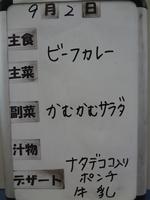 9月2日
主食
ビーフカレー
主菜
副菜 かむかむサラダ
汁物
デザート ナタデココ入り
ポンチ
牛乳